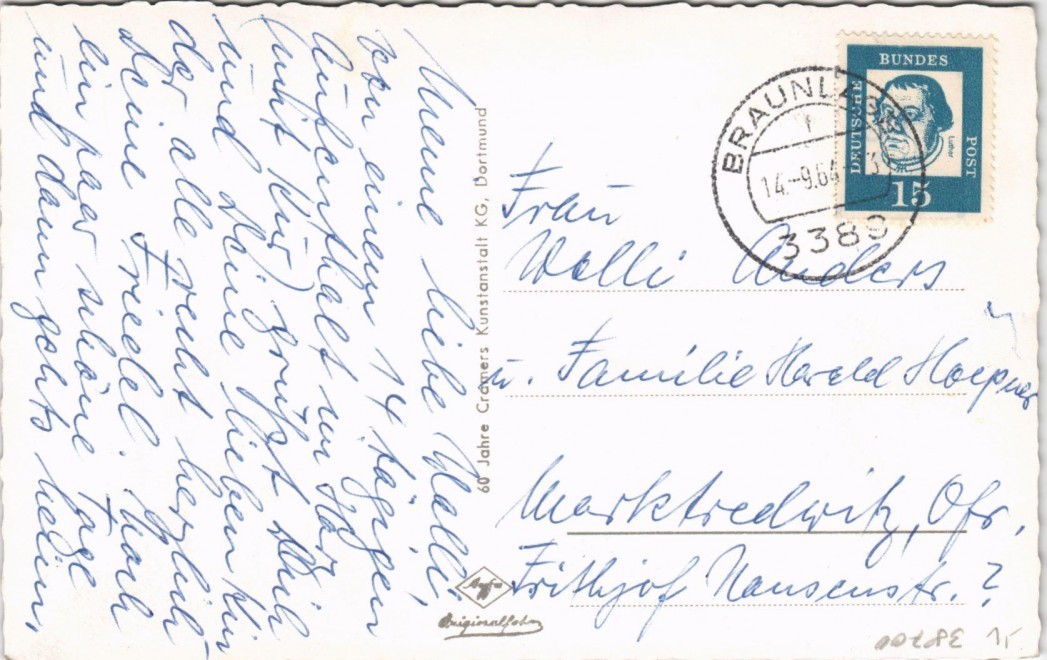 Meine liebe Walli,
von einem 14 tägigen
Aufenthalt im Harz
(nicht Kur) grüßt Dich
und Deine lieben Kin-
der alle recht herzlich
Deine Friedel. Noch
ein paar schöne Tage
und dann gehts heim.
60 Jahre Cramers Kunstanstalt KG, Dortmund
Agfa
Originalfoto
BRAUNLAGE
14.-9.64
3389
DEUTSCHE
BUNDES
POST
Luther
15
Frau
Walli Anders
u. Familie Harald Hoepner
Marktredwitz, Ofr.
Frithjof Nansenstr. ?